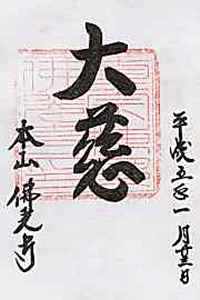 平成五年一月廿一日
大慈
本山佛光寺